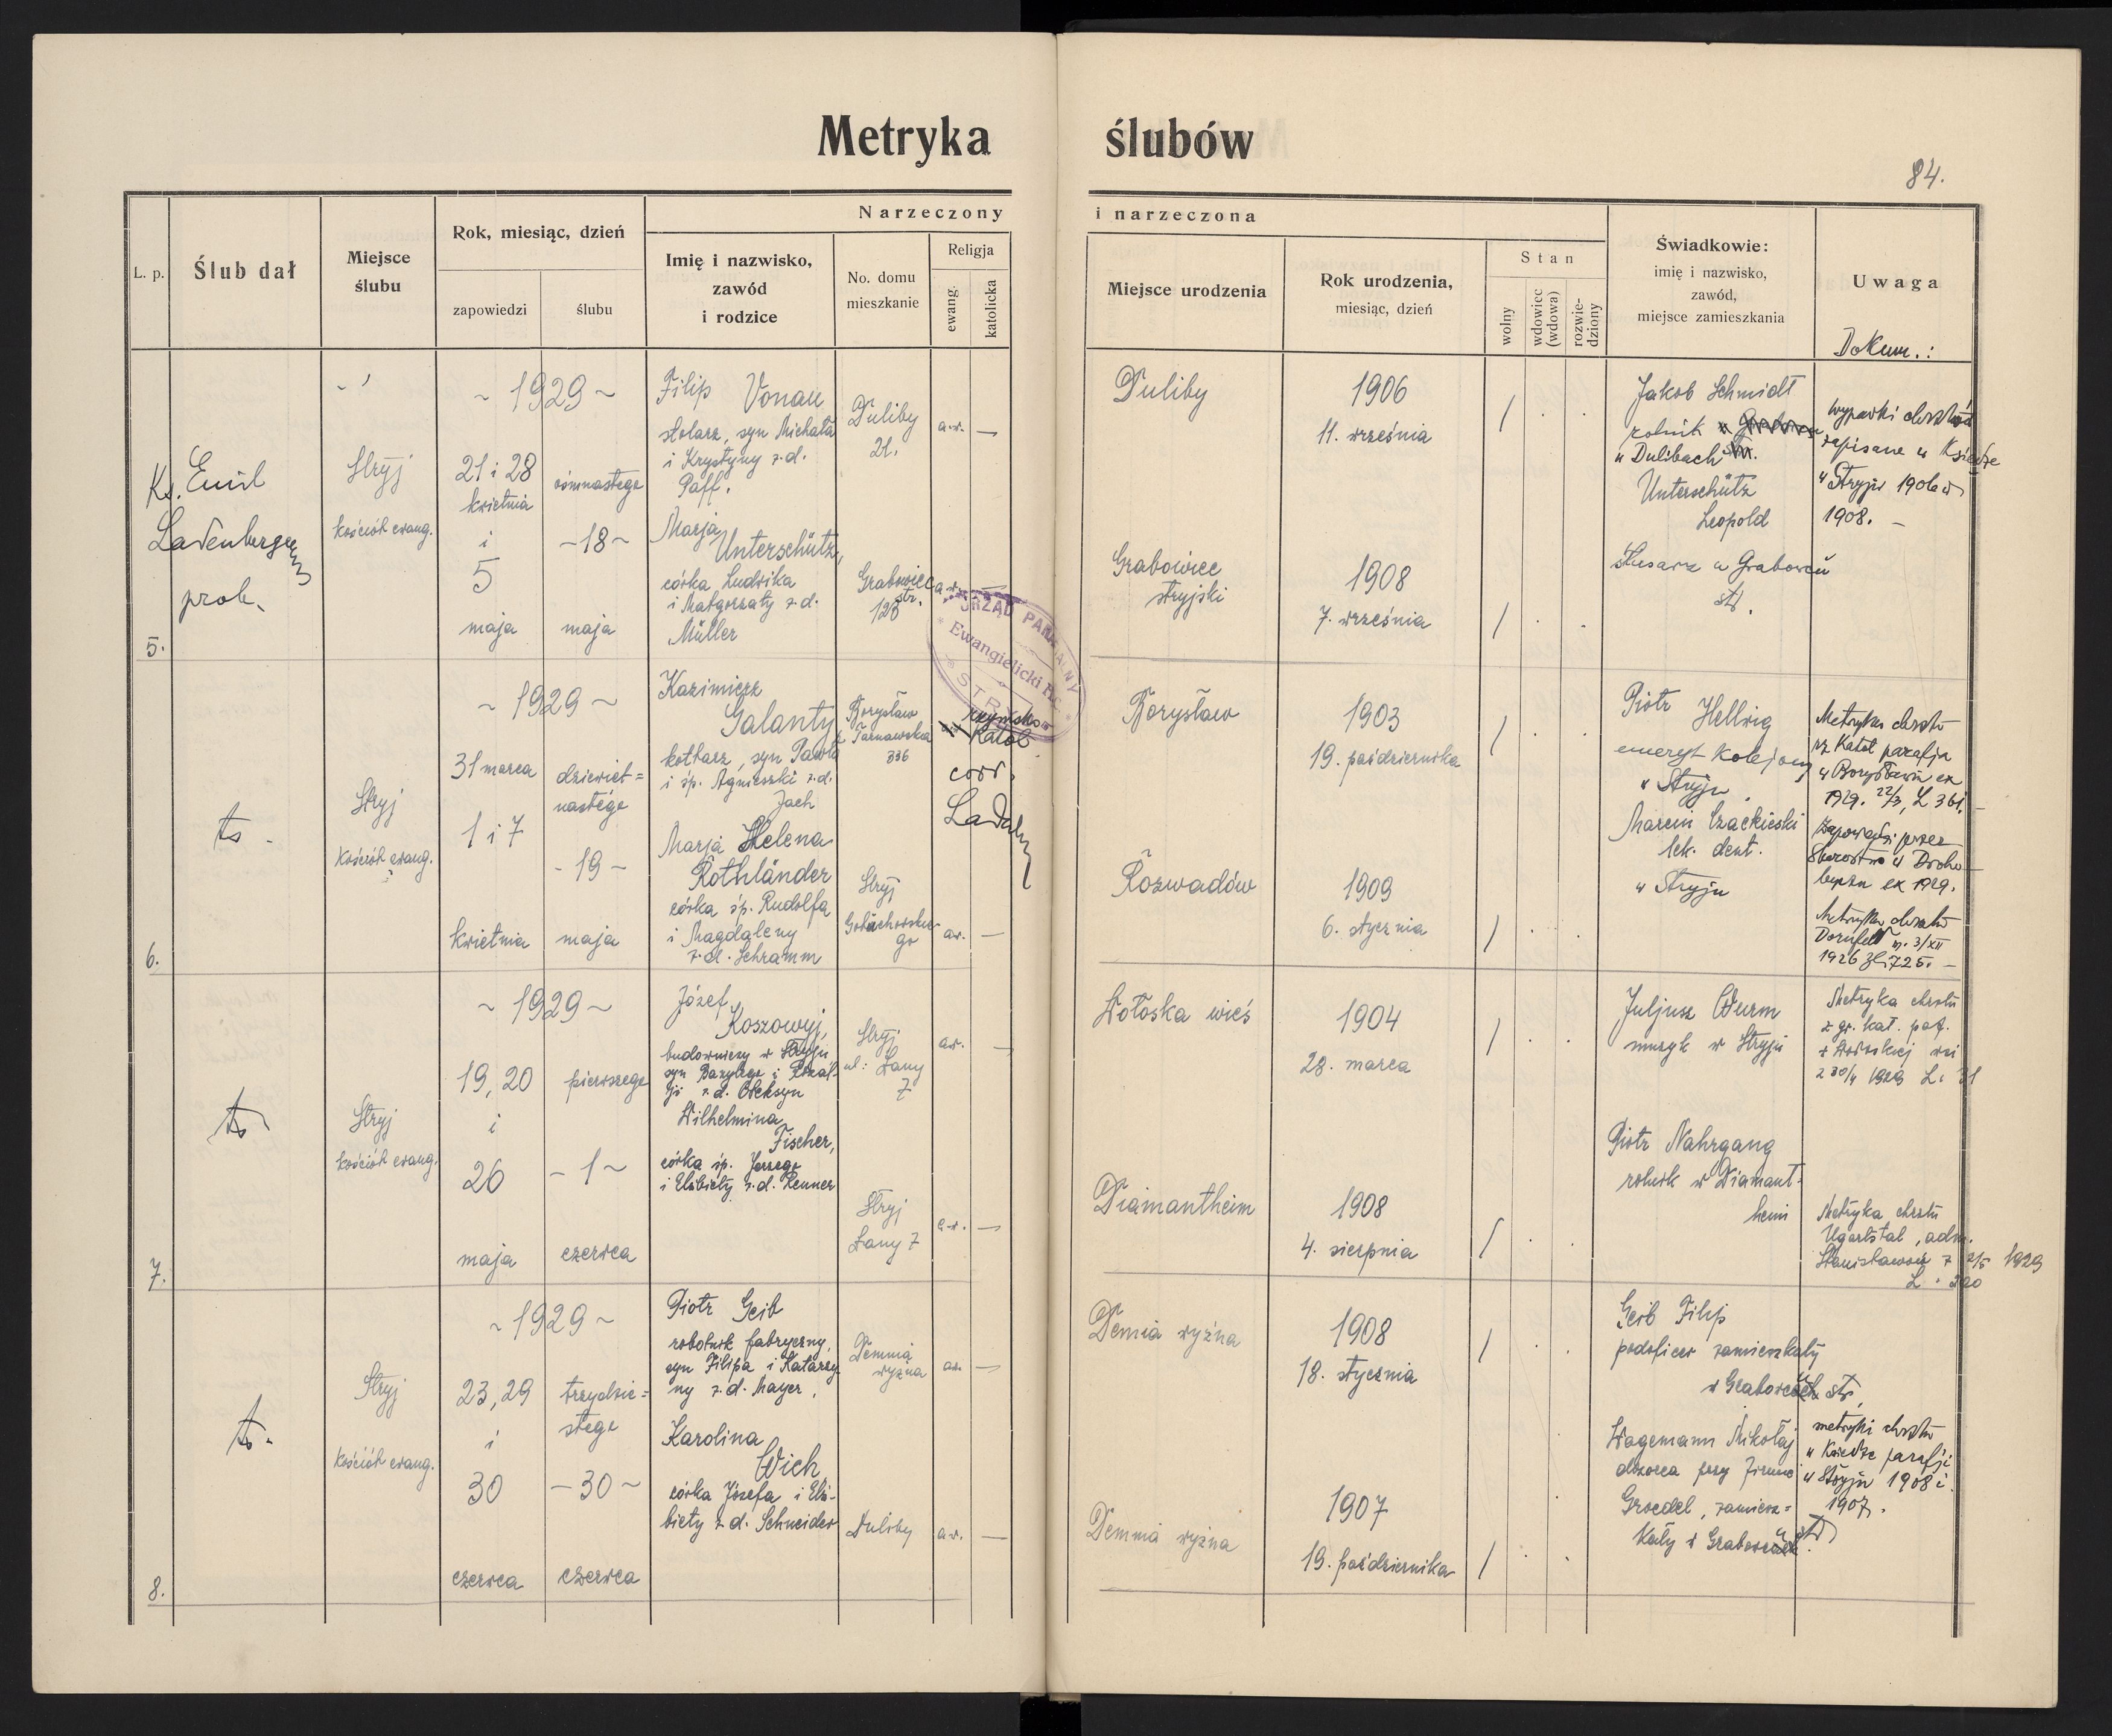 Metryka ślubów
84.
L. p.
Ślub dał
Miejsce
ślubu
Rok, miesiąc, dzień
zapowiedzi
ślubu
Narzeczony
Imię i nazwisko,
zawód
i rodzice
No. domu
mieszkanie
Religja
ewang.
katolicka
i narzeczona
Miejsce urodzenia
Rok urodzenia,
miesiąc, dzień
Stan
wolny
wdowiec
(wdowa)
rozwie-
dziony
Świadkowie:
imię i nazwisko,
zawód,
miejsce zamieszkania
Uwaga
Dokum.:
5.
Ks. Emil
Ladenberger
prob.
Stryj
kościół ewang.
~ 1929 ~
21 i 28
kwietnia
i
5
maja
ośmnastego
- 18 ~
maja
Filip Vonau
stolarz, syn Michała
i Krystyny z.d.
Paff.
Duliby
21.
a.w. —
Marja
Unterschütz,
córka Ludwika
i Małgorzaty z.d.
Müller
Grabowiec
str.
126
a.w. —
URZĄD PARAFIALNY
Ewangielicki
STRYJ
Duliby
1906
11. września
/ . .
Grabowiec
stryjski
1908
7. września
/ . .
Jakob Schmidt
rolnik
w Dulibach
Unterschütz
Leopold
ślusarz w Grabowcu
str.
zapisane w Księdze
w Stryju 1906 i
1908. —
6.
ts.
Stryj
Kościół ewang.
~ 1929 ~
31 marca
1 i 7
kwietnia
dziewięt=
nastego
- 19 -
maja
Kazimierz
Galanty
kotlarz, syn Pawła
i śp. Agnieszki z.d.
Jach
Borysław
Tarnawska
336
rzymsko
Katol
corr.
Marja Helena
Rothländer
córka śp. Rudolfa
i Magdaleny
z.d. Schramm
Stryj
Gołuchowskie-
go
aw. —
Borysław
1903
19. października
/ .
Rozwadów
1909
6. stycznia
/ . .
Piotr Hellwig
emeryt kolejowy
w Stryju
Marcin
lek. dent.
w Stryju
Metryka chrztu
rz. Katol parafja
w Borysławiu ex
1929. 22/3, L 361. —
Zapowiedzi przez
Starostwo w Droho-
byczu ex 1929.
Metryka chrztu
Dornfeld n. 3/XII
1926 725. —
7.
ts
Stryj
kościół ewang.
~ 1929 ~
19, 20
i
26
maja
pierwszego
- 1 ~
czerwca
Józef
Koszowyj,
budowniczy w Stryju
syn Bazylego i
z.d. Ołeksyn
Stryj
ul: Łany
7
aw. —
Wilhelmina
Fischer,
córka śp. Jerzego
i Elżbiety z.d. Renner
Stryj
Łany 7
a.w. —
Wołoska wieś
1904
28. marca
/ . .
Diamantheim
1908
4. sierpnia
/ . .
Juljusz Wurm
muzyk w Stryju
Piotr Nahrgang
rolnik w Diamant-
heim
Metryka chrztu
z gr. kat. par.
w Wołoskiej wsi
z 30/4 1929 L. 31
Metryka chrztu
Ugartstal, adm.
Stanisławów z 2/5 1929
L.
8.
ts.
Stryj
Kościół ewang.
~ 1929 ~
23, 29
i
30
czerwca
trzydzie=
stego
- 30 ~
czerwca
Piotr Geib
robotnik fabryczny,
syn Filipa i Katarzy
ny z.d. Mayer.
Demnia
wyżna
aw. —
Karolina
Wich
córka Józefa i Elż-
biety z.d. Schneider
Duliby
aw. —
Demia wyżna
1908
18. stycznia
/ . .
Demnia wyżna
1907
19. października
/ . .
Geib Filip
podoficer zamieszkały
w Grabowcu str,
Wagemann Mikołaj
dozorca przy firmie
Groedel, zamiesz=
kały w Grabowcu str
metryki chrztu
w Księdze parafji
w Stryju 1908 i
1907.